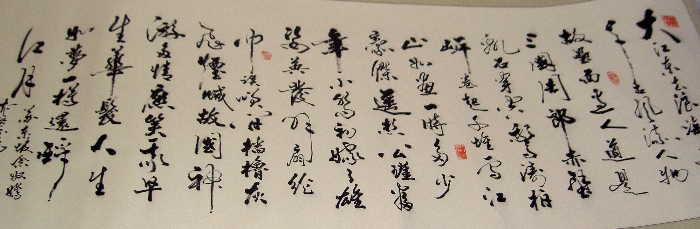 大江東去浪淘
盡千古風流人物
故壘西邊人道是
三國周郎赤壁
亂石穿空驚濤拍
岸卷起千堆雪江
山如畫一時多少
豪傑遥想公瑾當
年小喬初嫁了雄
姿英發羽扇綸
巾談笑間檣櫓灰
飛煙滅故國神
游多情應笑我早
生華髮人生
如夢一樽還酹
江月
蘇東坡念奴嬌